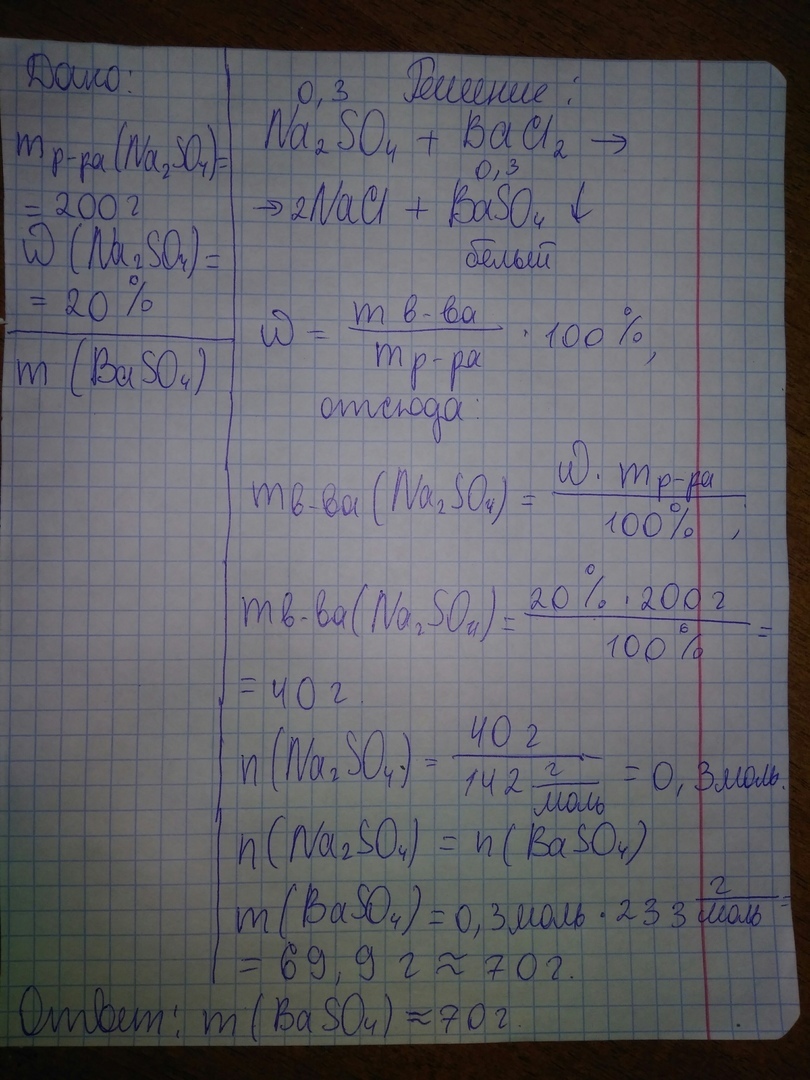 Дано:
m р-ра (Na₂SO₄) =
= 200 г
ω (Na₂SO₄) =
= 20 %
m (BaSO₄)
Решение:
0,3
Na₂SO₄ + BaCl₂ →
0,3
→ 2NaCl + BaSO₄ ↓
белый
ω = m в-ва / m р-ра · 100 %,
отсюда:
m в-ва (Na₂SO₄) = ω · m р-ра / 100 % ;
m в-ва (Na₂SO₄) = 20 % · 200 г / 100 % =
= 40 г.
n (Na₂SO₄) = 40 г / 142 г/моль = 0,3 моль.
n (Na₂SO₄) = n (BaSO₄)
m (BaSO₄) = 0,3 моль · 233 г/моль =
= 69,9 г ≈ 70 г.
Ответ: m (BaSO₄) ≈ 70 г.